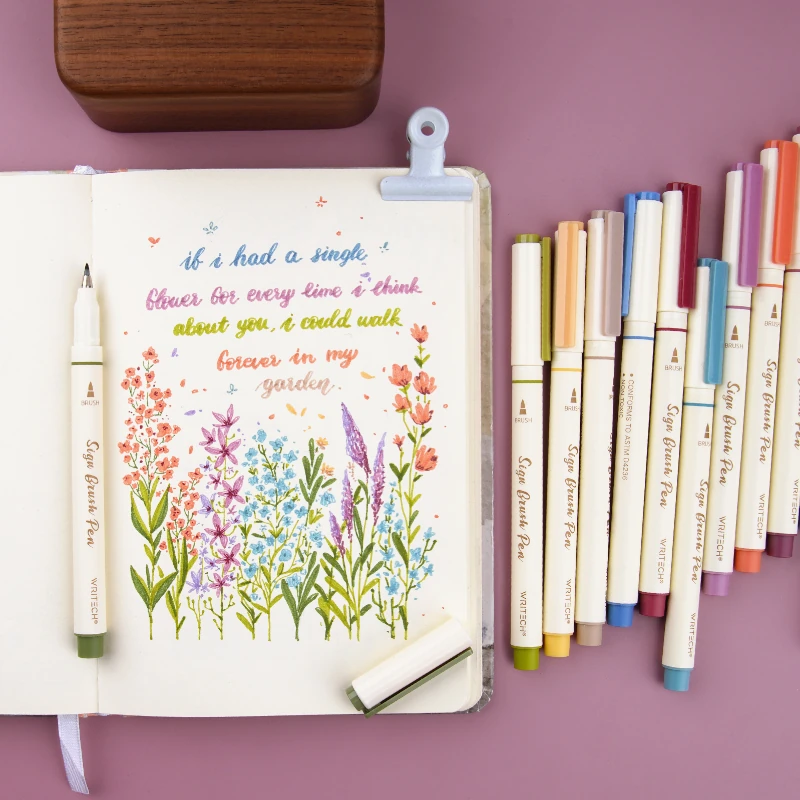 if i had a single
flower for every time i think
about you, i could walk
forever in my
garden.
BRUSH
Sign Brush Pen
WRITECH®
BRUSH
Sign Brush Pen
WRITECH®
BRUSH
Sign Brush Pen
WRITECH®
CONFORMS TO ASTM D4236
BRUSH
Sign Brush Pen
WRITECH®
BRUSH
Sign Brush Pen
WRITECH®
BRUSH
Sign Brush Pen
WRITECH®
BRUSH
Sign Brush Pen
WRITECH®
WRITECH®